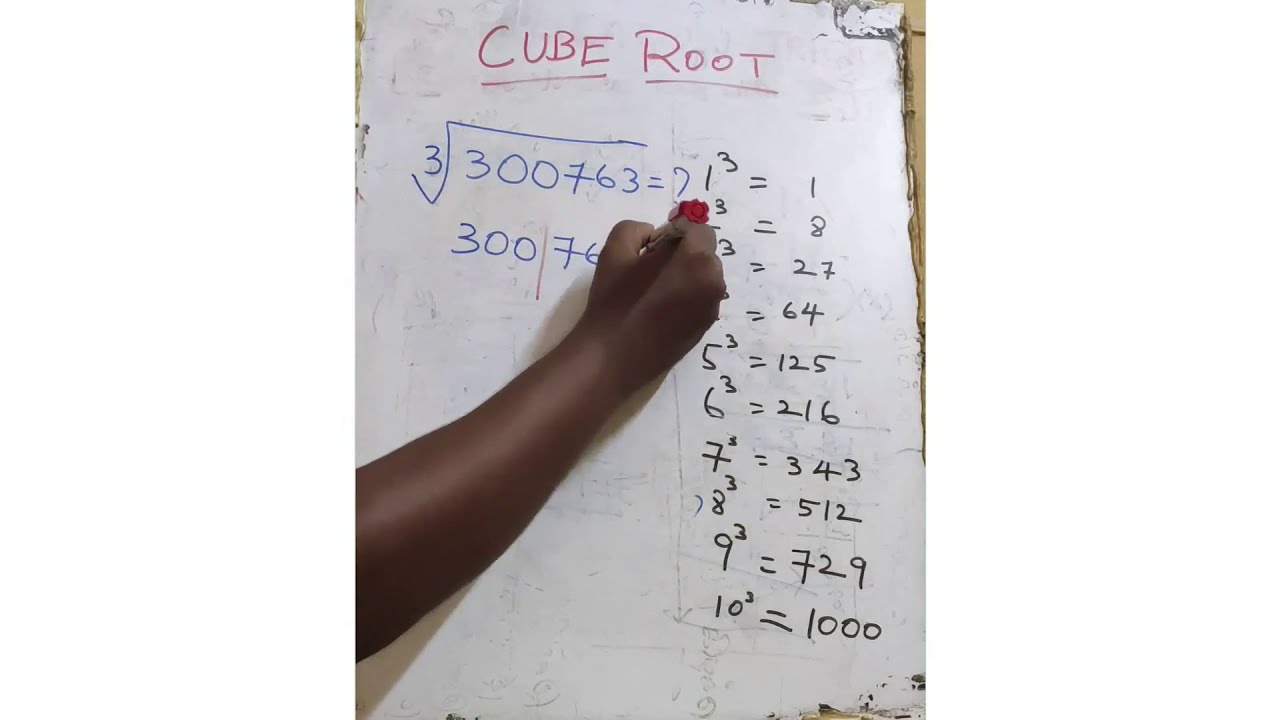 CUBE ROOT
∛300763 = ?
300|76
1³ = 1
³ = 8
³ = 27
= 64
5³ = 125
6³ = 216
7³ = 343
8³ = 512
9³ = 729
10³ = 1000